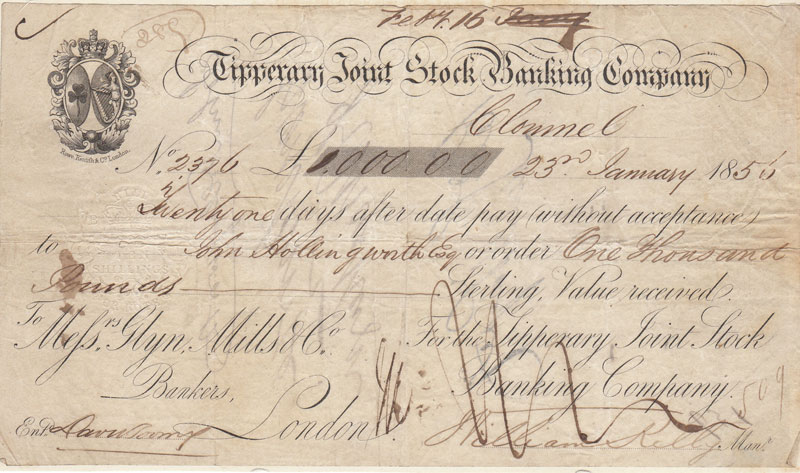 Feby. 16
Tipperary Joint Stock Banking Company
Rowe, Kentish & Co. London.
Clonmel
No. 2376 £1,000 00 0 23rd January 1856
Twenty one days after date pay (without acceptance)
to John Hollingworth Esq or order One Thousand
Pounds Sterling, Value received.
To Messrs. Glyn, Mills & Co. For the Tipperary Joint Stock
Bankers, Banking Company.
London.
Entd. William Kelly Manr.
509